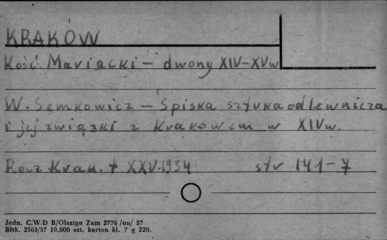 KRAKÓW
Kość. Mariacki – dwony XIV–XVw
W. Semkowicz – Spiska sztuka odlewnicza
i jej związki z Krakowem w XIVw.
Rocz Krak. t XXV.1934 str 141–7
Jedn. C.W.D B/Olsztyn Zam 2776 /on/ 57
Bltk. 2563/57 10.000 szt. karton kl. 7 g 220.